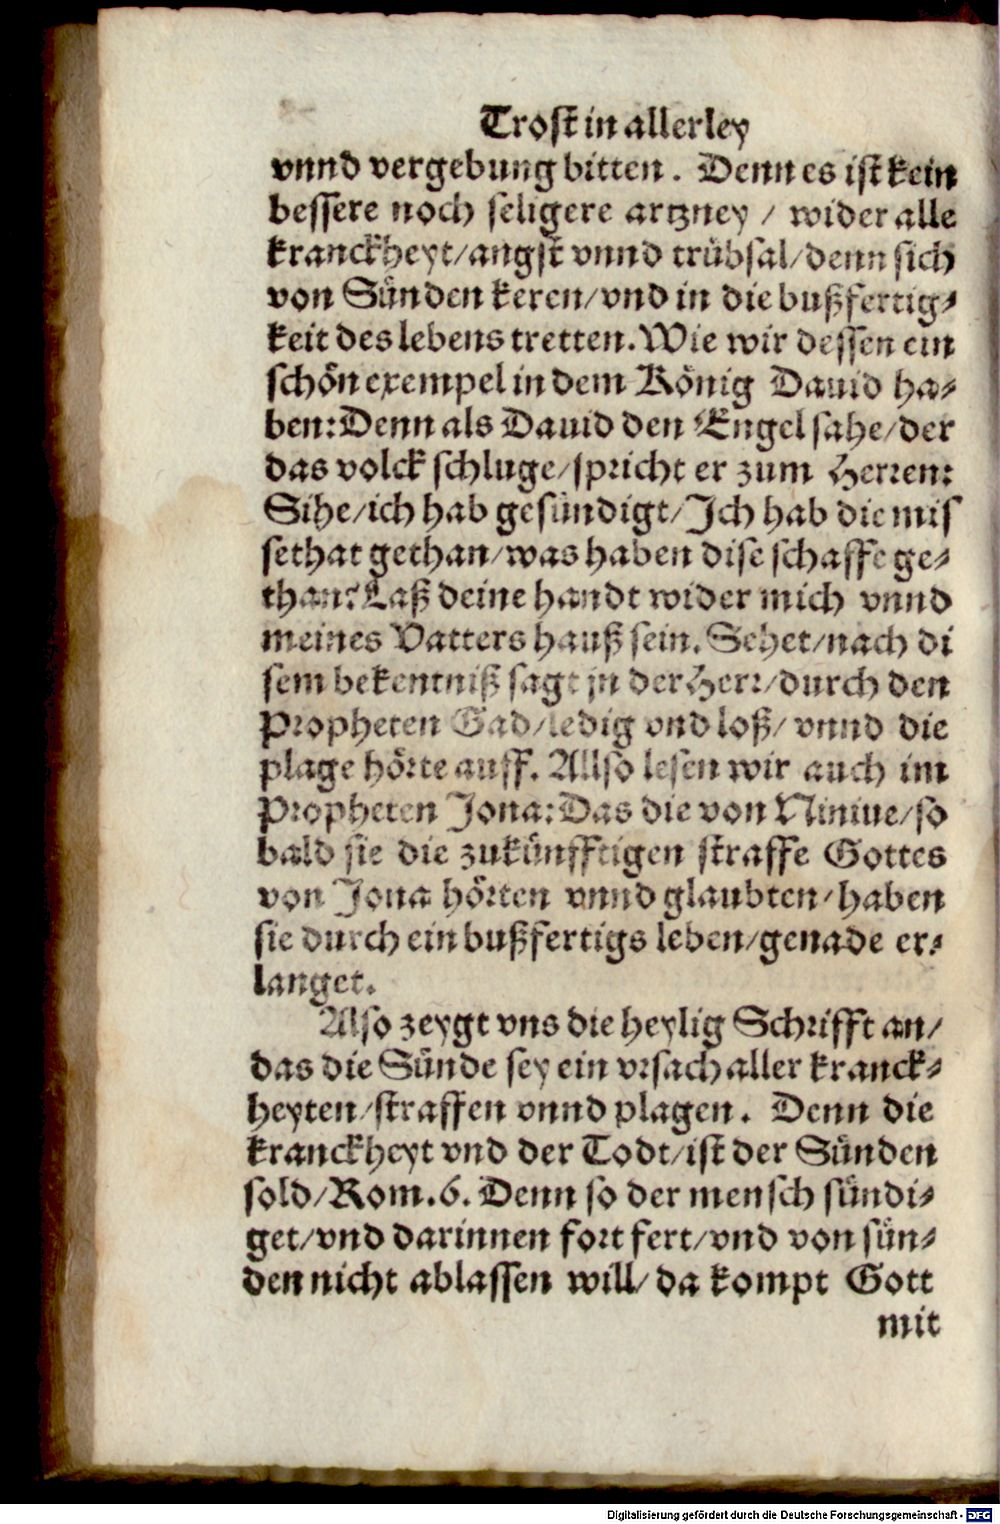 Trost in allerley
vnnd vergebung bitten. Denn es ist kein
bessere noch seligere artzney / wider alle
kranckheyt/angst vnnd trübsal/denn sich
von Sünden keren/vnd in die bußfertig-
keit des lebens tretten. Wie wir dessen ein
schön exempel in dem König Dauid ha-
ben: Denn als Dauid den Engel sahe/der
das volck schluge/spricht er zum Herren:
Sihe/ich hab gesündigt/Ich hab die mis
sethat gethan/was haben dise schaffe ge-
than? Laß deine handt wider mich vnnd
meines Vatters hauß sein. Sehet/nach di
sem bekentniß sagt jn der Herr/durch den
Propheten Gad/ledig vnd loß/ vnnd die
plage hörte auff. Allso lesen wir auch im
Propheten Jona: Das die von Niniue/so
bald sie die zukünfftigen straffe Gottes
von Jona hörten vnnd glaubten/haben
sie durch ein bußfertigs leben/genade er-
langet.
Also zeygt vns die heylig Schrifft an/
das die Sünde sey ein vrsach aller kranck-
heyten/straffen vnnd plagen. Denn die
kranckheyt vnd der Todt/ist der Sünden
sold/Rom.6. Denn so der mensch sündi-
get/vnd darinnen fort fert/vnd von sün-
den nicht ablassen will/da kompt Gott
mit
Digitalisierung gefördert durch die Deutsche Forschungsgemeinschaft - DFG